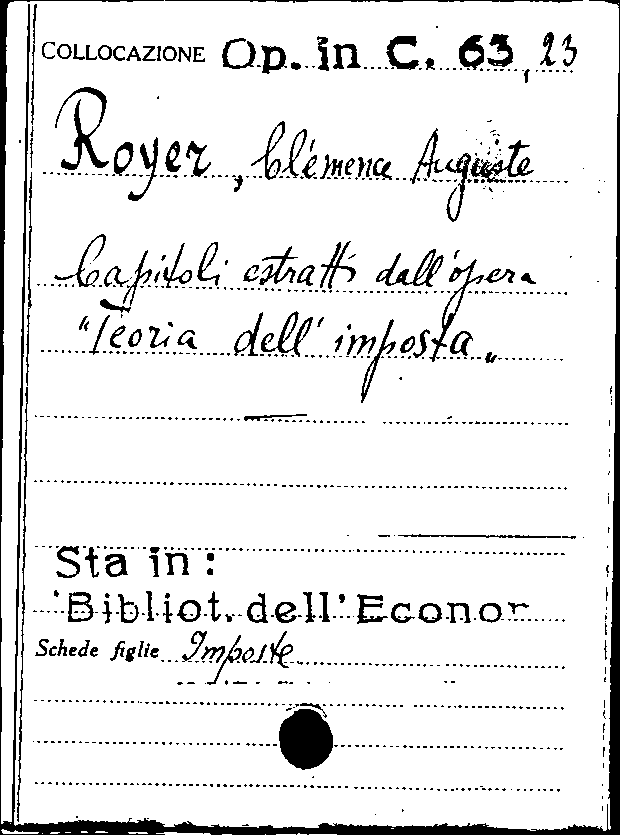 COLLOCAZIONE Op. in C. 63, 23
Royer, Clémence Auguste
Capitoli estratti dall'opera
"Teoria dell'imposta"
Sta in:
'Bibliot. dell'Econor
Schede figlie Imposte